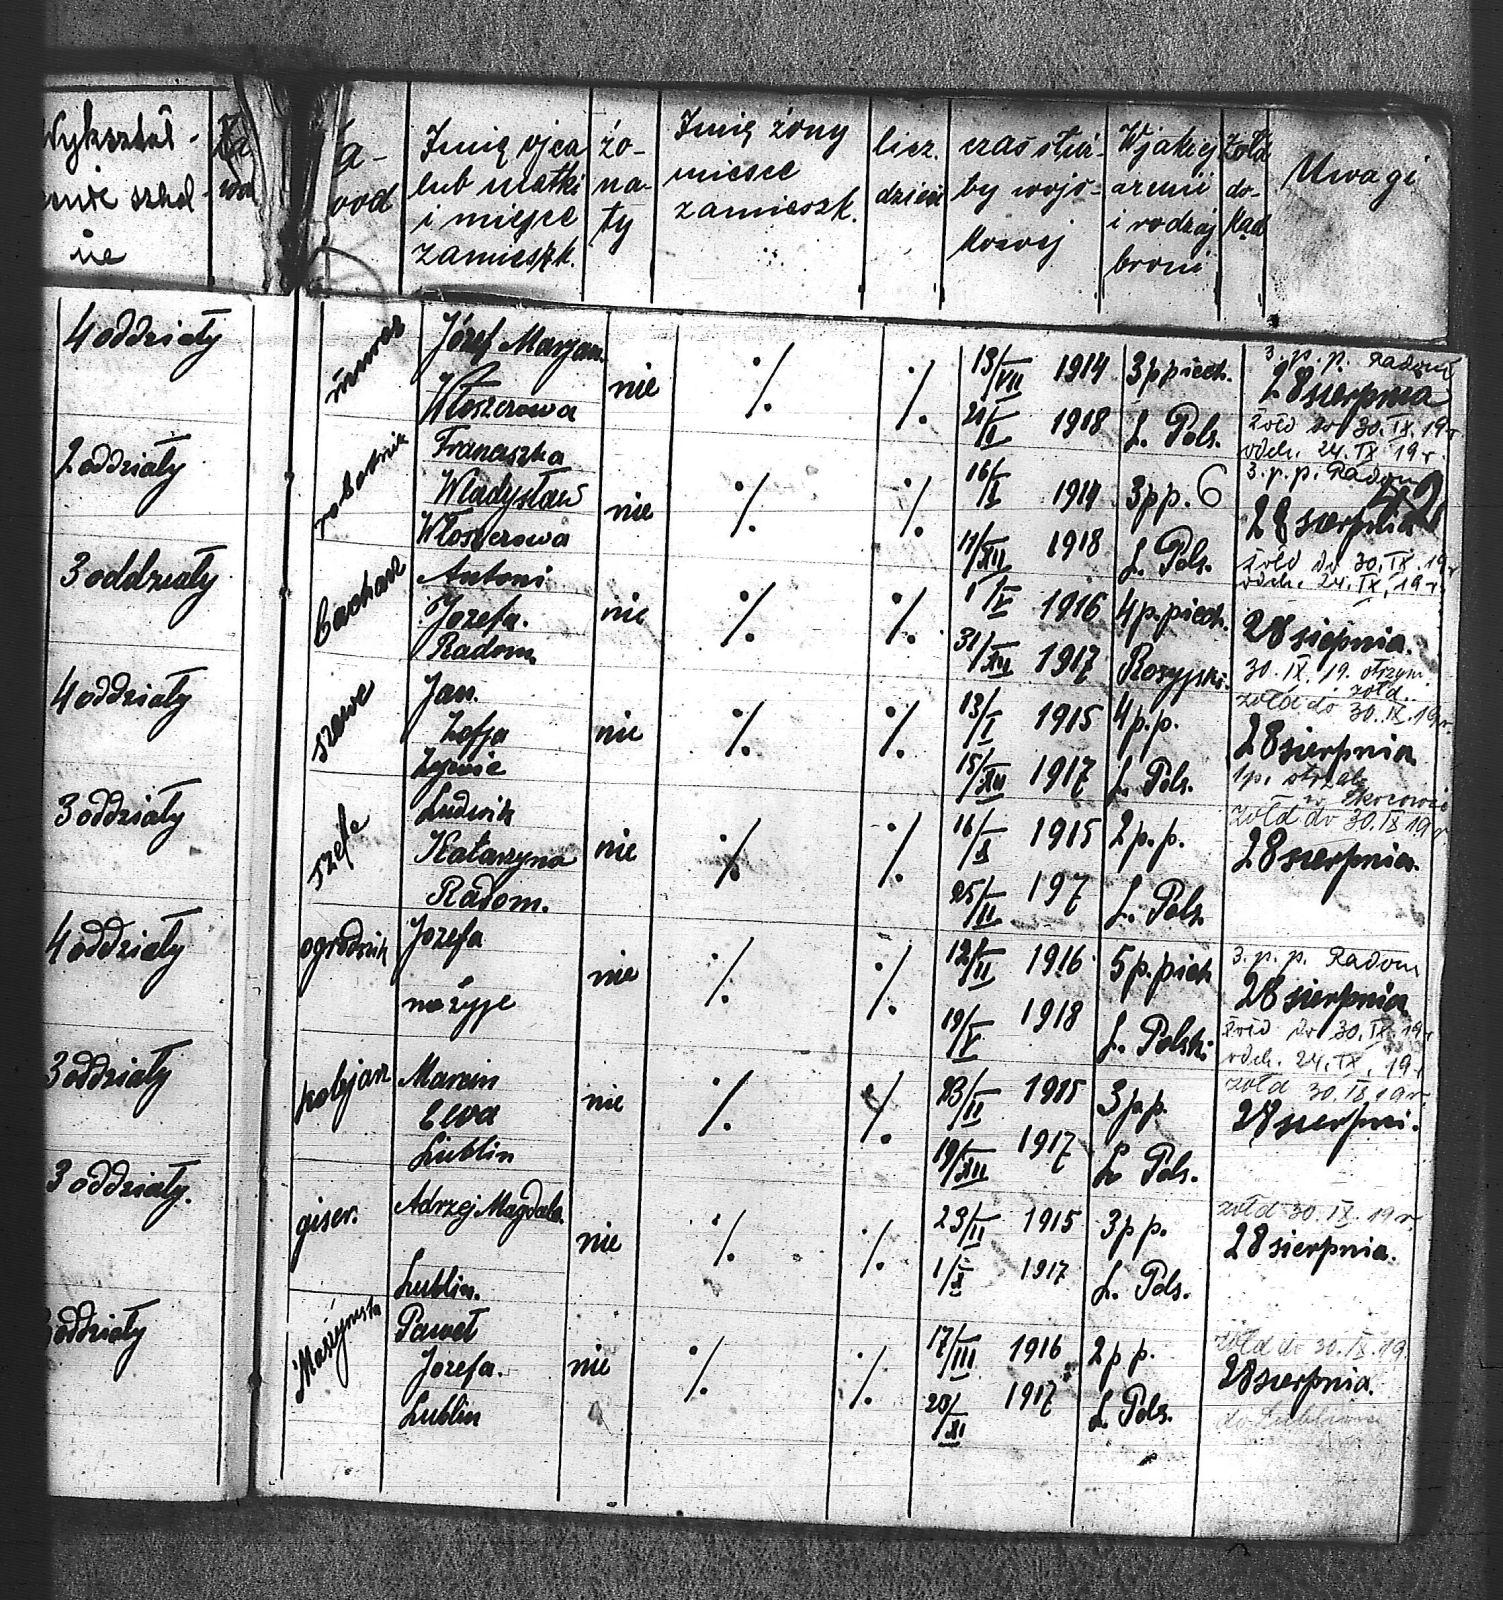 Wykształ- Za
cenie szkol- wo
ne
Za-
wod
Imię ojca
lub matki
i miejsce
zamieszk.
żo-
na-
ty
Imię żony
miesce
zamieszk.
licz.
dzieci
czas służ-
by wojs-
kowej
W jakiej
armii
i rodzaj
broni
Żołd
do-
kąd
Uwagi
4 oddziały
Józef Maryan
Włoszczowa
nie
%
%
13/VII 1914
3 p piech.
L. Pols.
1918
3. p. p. Radom
28 sierpnia
żołd do 30. IX. 19 r.
odch. 24. IX 19 r.
2 oddziały
robotnik
Franciszka
Władysław
Włoszczowa
nie
%
%
16/X 1914
11/XII 1918
3 p p. 6
L. Pols.
3. p. p. Radom
42
28 sierpnia
żołd do 30. IX. 19 r
odch. 24. IX. 19 r.
3 oddziały
Antoni
Jozefa.
Radom
nie
%
%
1/V 1916
31/XII 1917
4 p. piech.
Rosyjski.
28 sierpnia.
30. IX. 19. otrzym.
żołd.
4 oddziały
szewc
Jan.
Zofja
Zywie
nie
%
%
13/I 1915
15/XII 1917
4 p. p.
L. Pols.
żołd do 30. IX. 19 r.
28 sierpnia
1 p.
3 oddziały
Ludwik
Katarzyna
Radom.
nie
%
%
16/X 1915
25/II 197
2 p. p.
L. Pols.
żołd do 30. IX 19 r
28 sierpnia.
4 oddziały
ogrodnik
Jozefa
nażyje
nie
%
%
12/II 1916
19/V 1918
5 p. piech
L. Polski
3. p. p. Radom
28 sierpnia
żołd do 30. IX. 19 r
odch. 24. IX. 19 r
3 oddziały
Marcin
Ewa
Lublin
nie
%
%
23/II 1915
19/XII 1917
3 p. p.
L. Pols.
żołd 30. IX 19 r.
28 sierpni.
3 oddziały.
giser.
Adrzej Magdala.
Lublin.
nie
%
%
23/II 1915
1/X 1917
3 p p.
L. Pols.
żołd 30. IX. 19 r.
28 sierpnia.
oddziały
Maszynista
Paweł
Jozefa.
Lublin
nie
%
%
17/III 1916
20/XI 1917
2 p p.
L. Pols.
żołd do 30. IX. 19.
28 sierpnia.
do Lublina